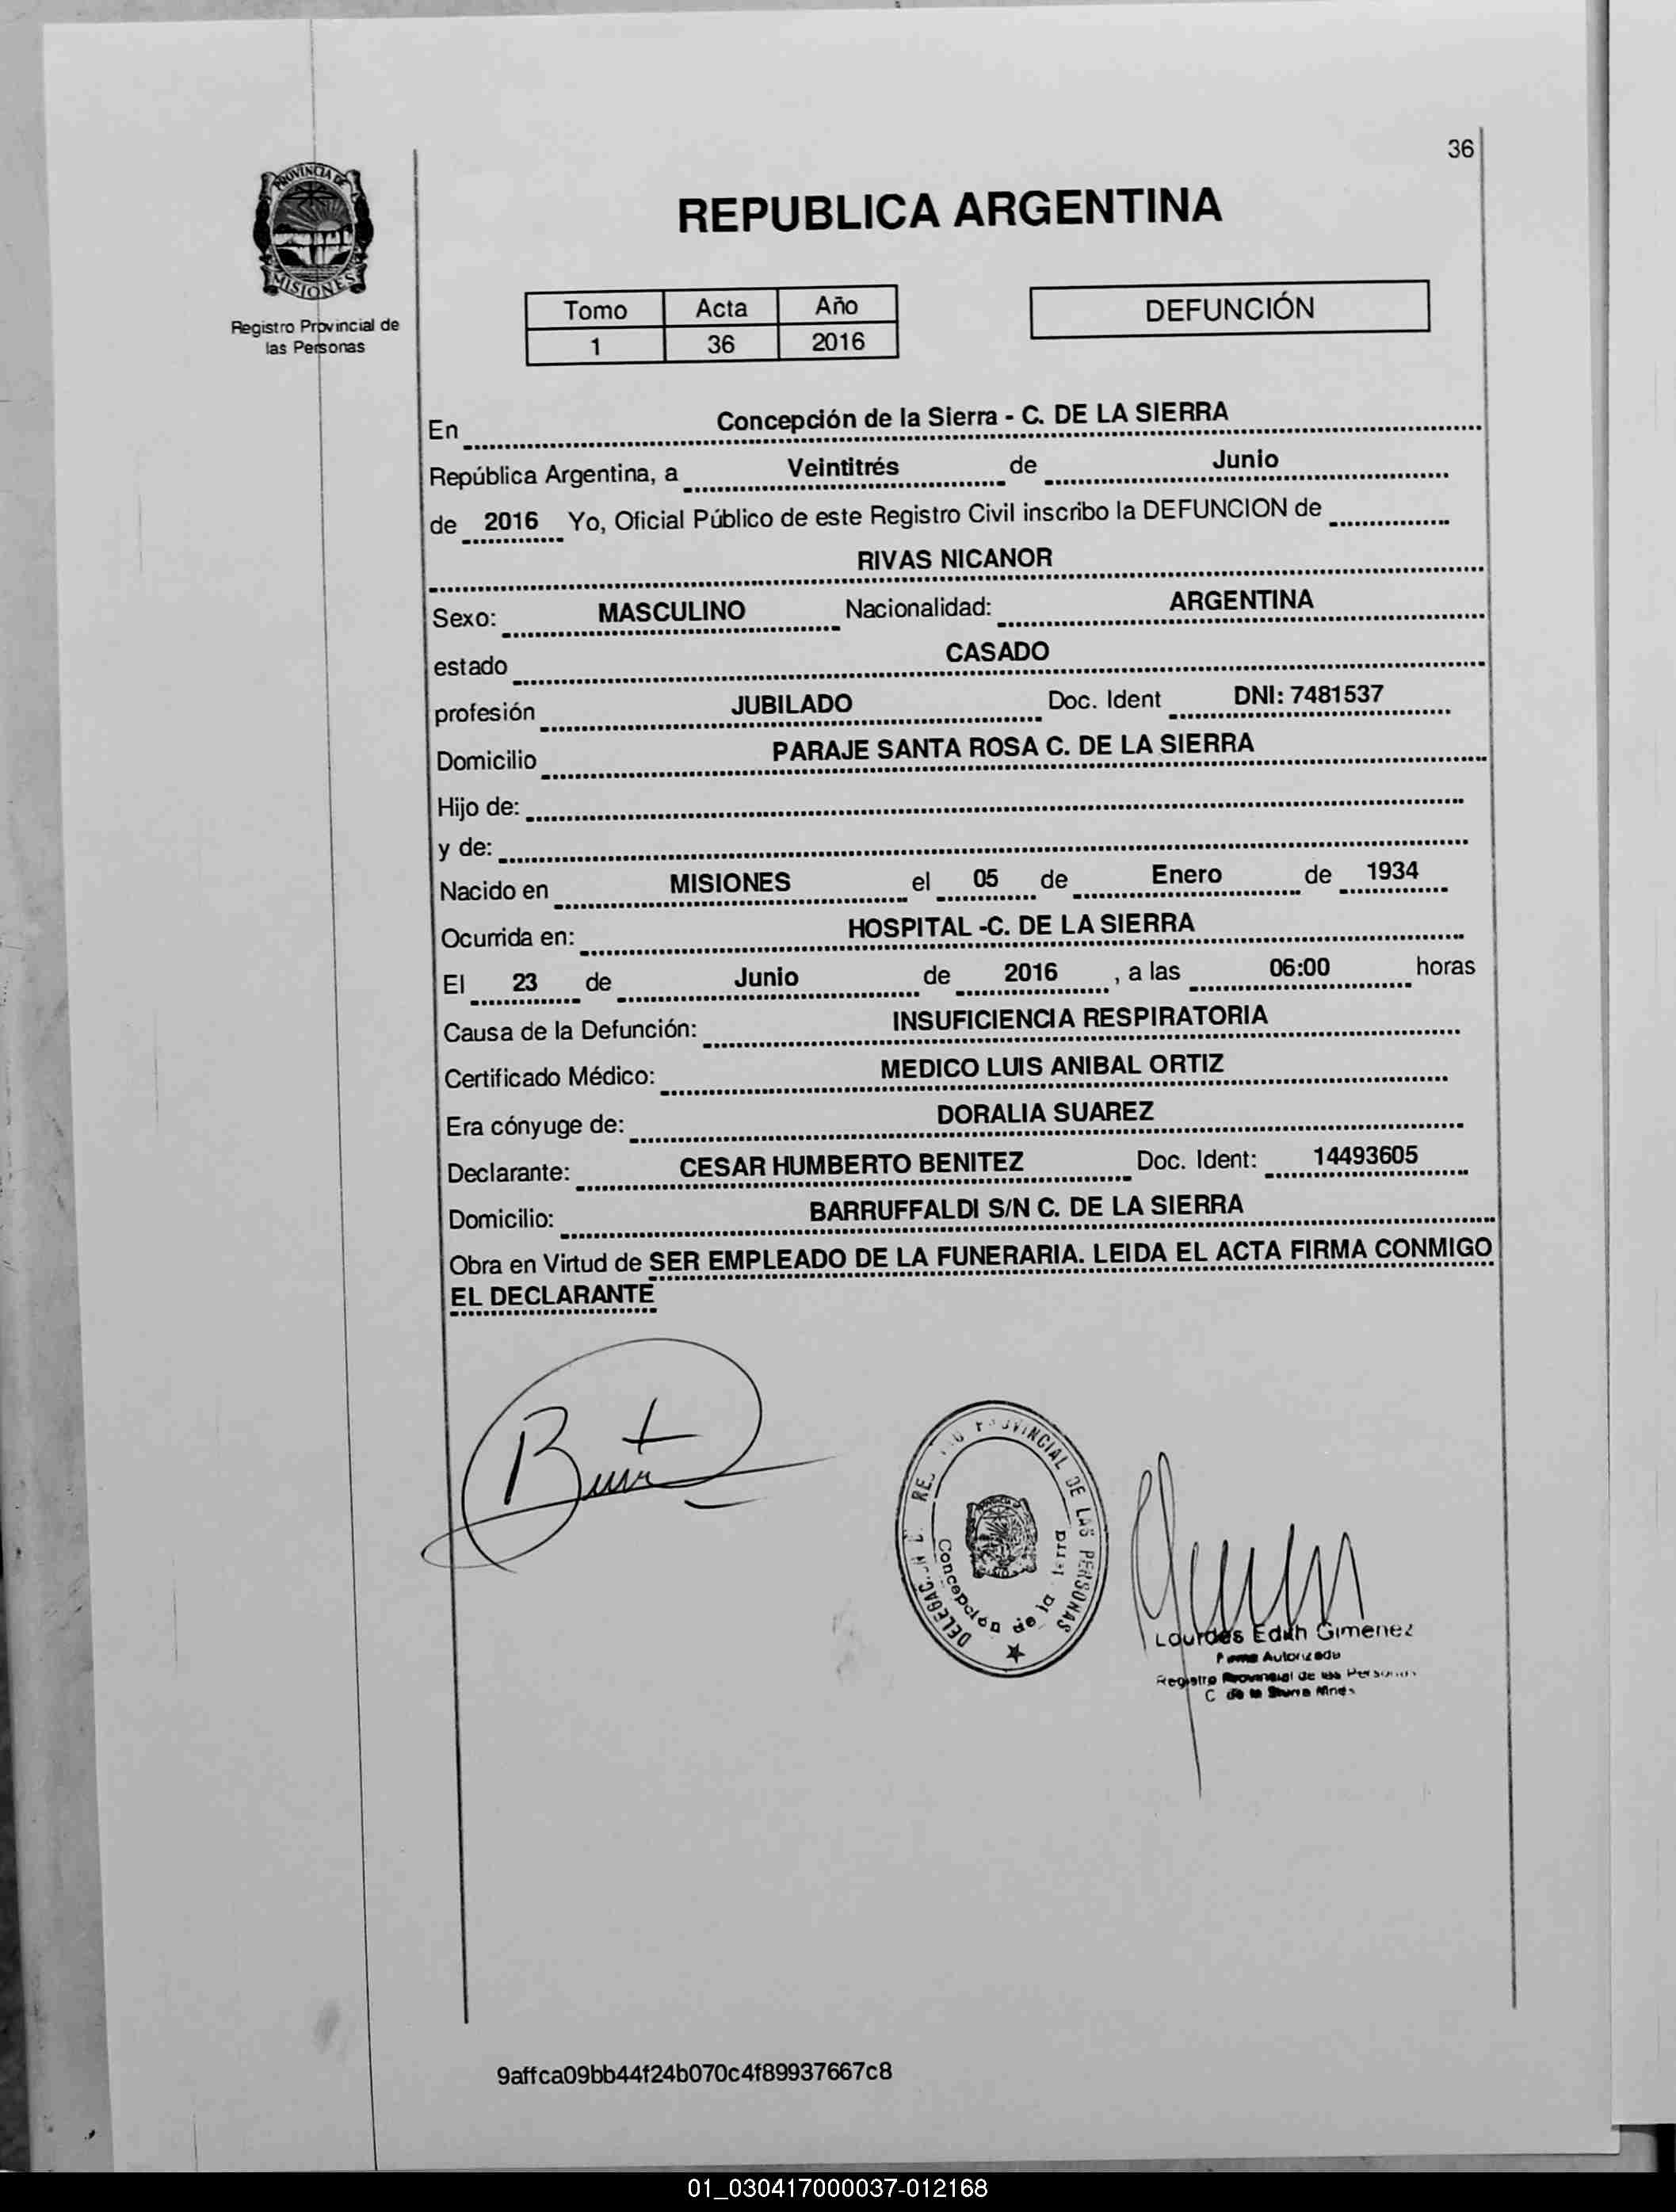 36
PROVINCIA DE
MISIONES
Registro Provincial de
las Personas
REPUBLICA ARGENTINA
Tomo Acta Año
1 36 2016
DEFUNCIÓN
En Concepción de la Sierra - C. DE LA SIERRA
República Argentina, a Veintitrés de Junio
de 2016 Yo, Oficial Público de este Registro Civil inscribo la DEFUNCION de
RIVAS NICANOR
Sexo: MASCULINO Nacionalidad: ARGENTINA
estado CASADO
profesión JUBILADO Doc. Ident DNI: 7481537
Domicilio PARAJE SANTA ROSA C. DE LA SIERRA
Hijo de:
y de:
Nacido en MISIONES el 05 de Enero de 1934
Ocurrida en: HOSPITAL -C. DE LA SIERRA
El 23 de Junio de 2016 , a las 06:00 horas
Causa de la Defunción: INSUFICIENCIA RESPIRATORIA
Certificado Médico: MEDICO LUIS ANIBAL ORTIZ
Era cónyuge de: DORALIA SUAREZ
Declarante: CESAR HUMBERTO BENITEZ Doc. Ident: 14493605
Domicilio: BARRUFFALDI S/N C. DE LA SIERRA
Obra en Virtud de SER EMPLEADO DE LA FUNERARIA. LEIDA EL ACTA FIRMA CONMIGO
EL DECLARANTE
PROVINCIAL DE LAS PERSONAS
Concepción de la
Lourdes Edith Gimenez
Autorizada
Registro Provincial de las Personas
C de la
9affca09bb44f24b070c4f89937667c8
01_030417000037-012168